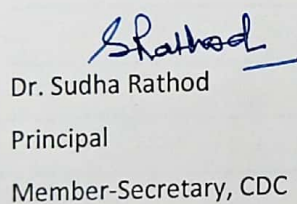 SRathod
Dr. Sudha Rathod
Principal
Member-Secretary, CDC